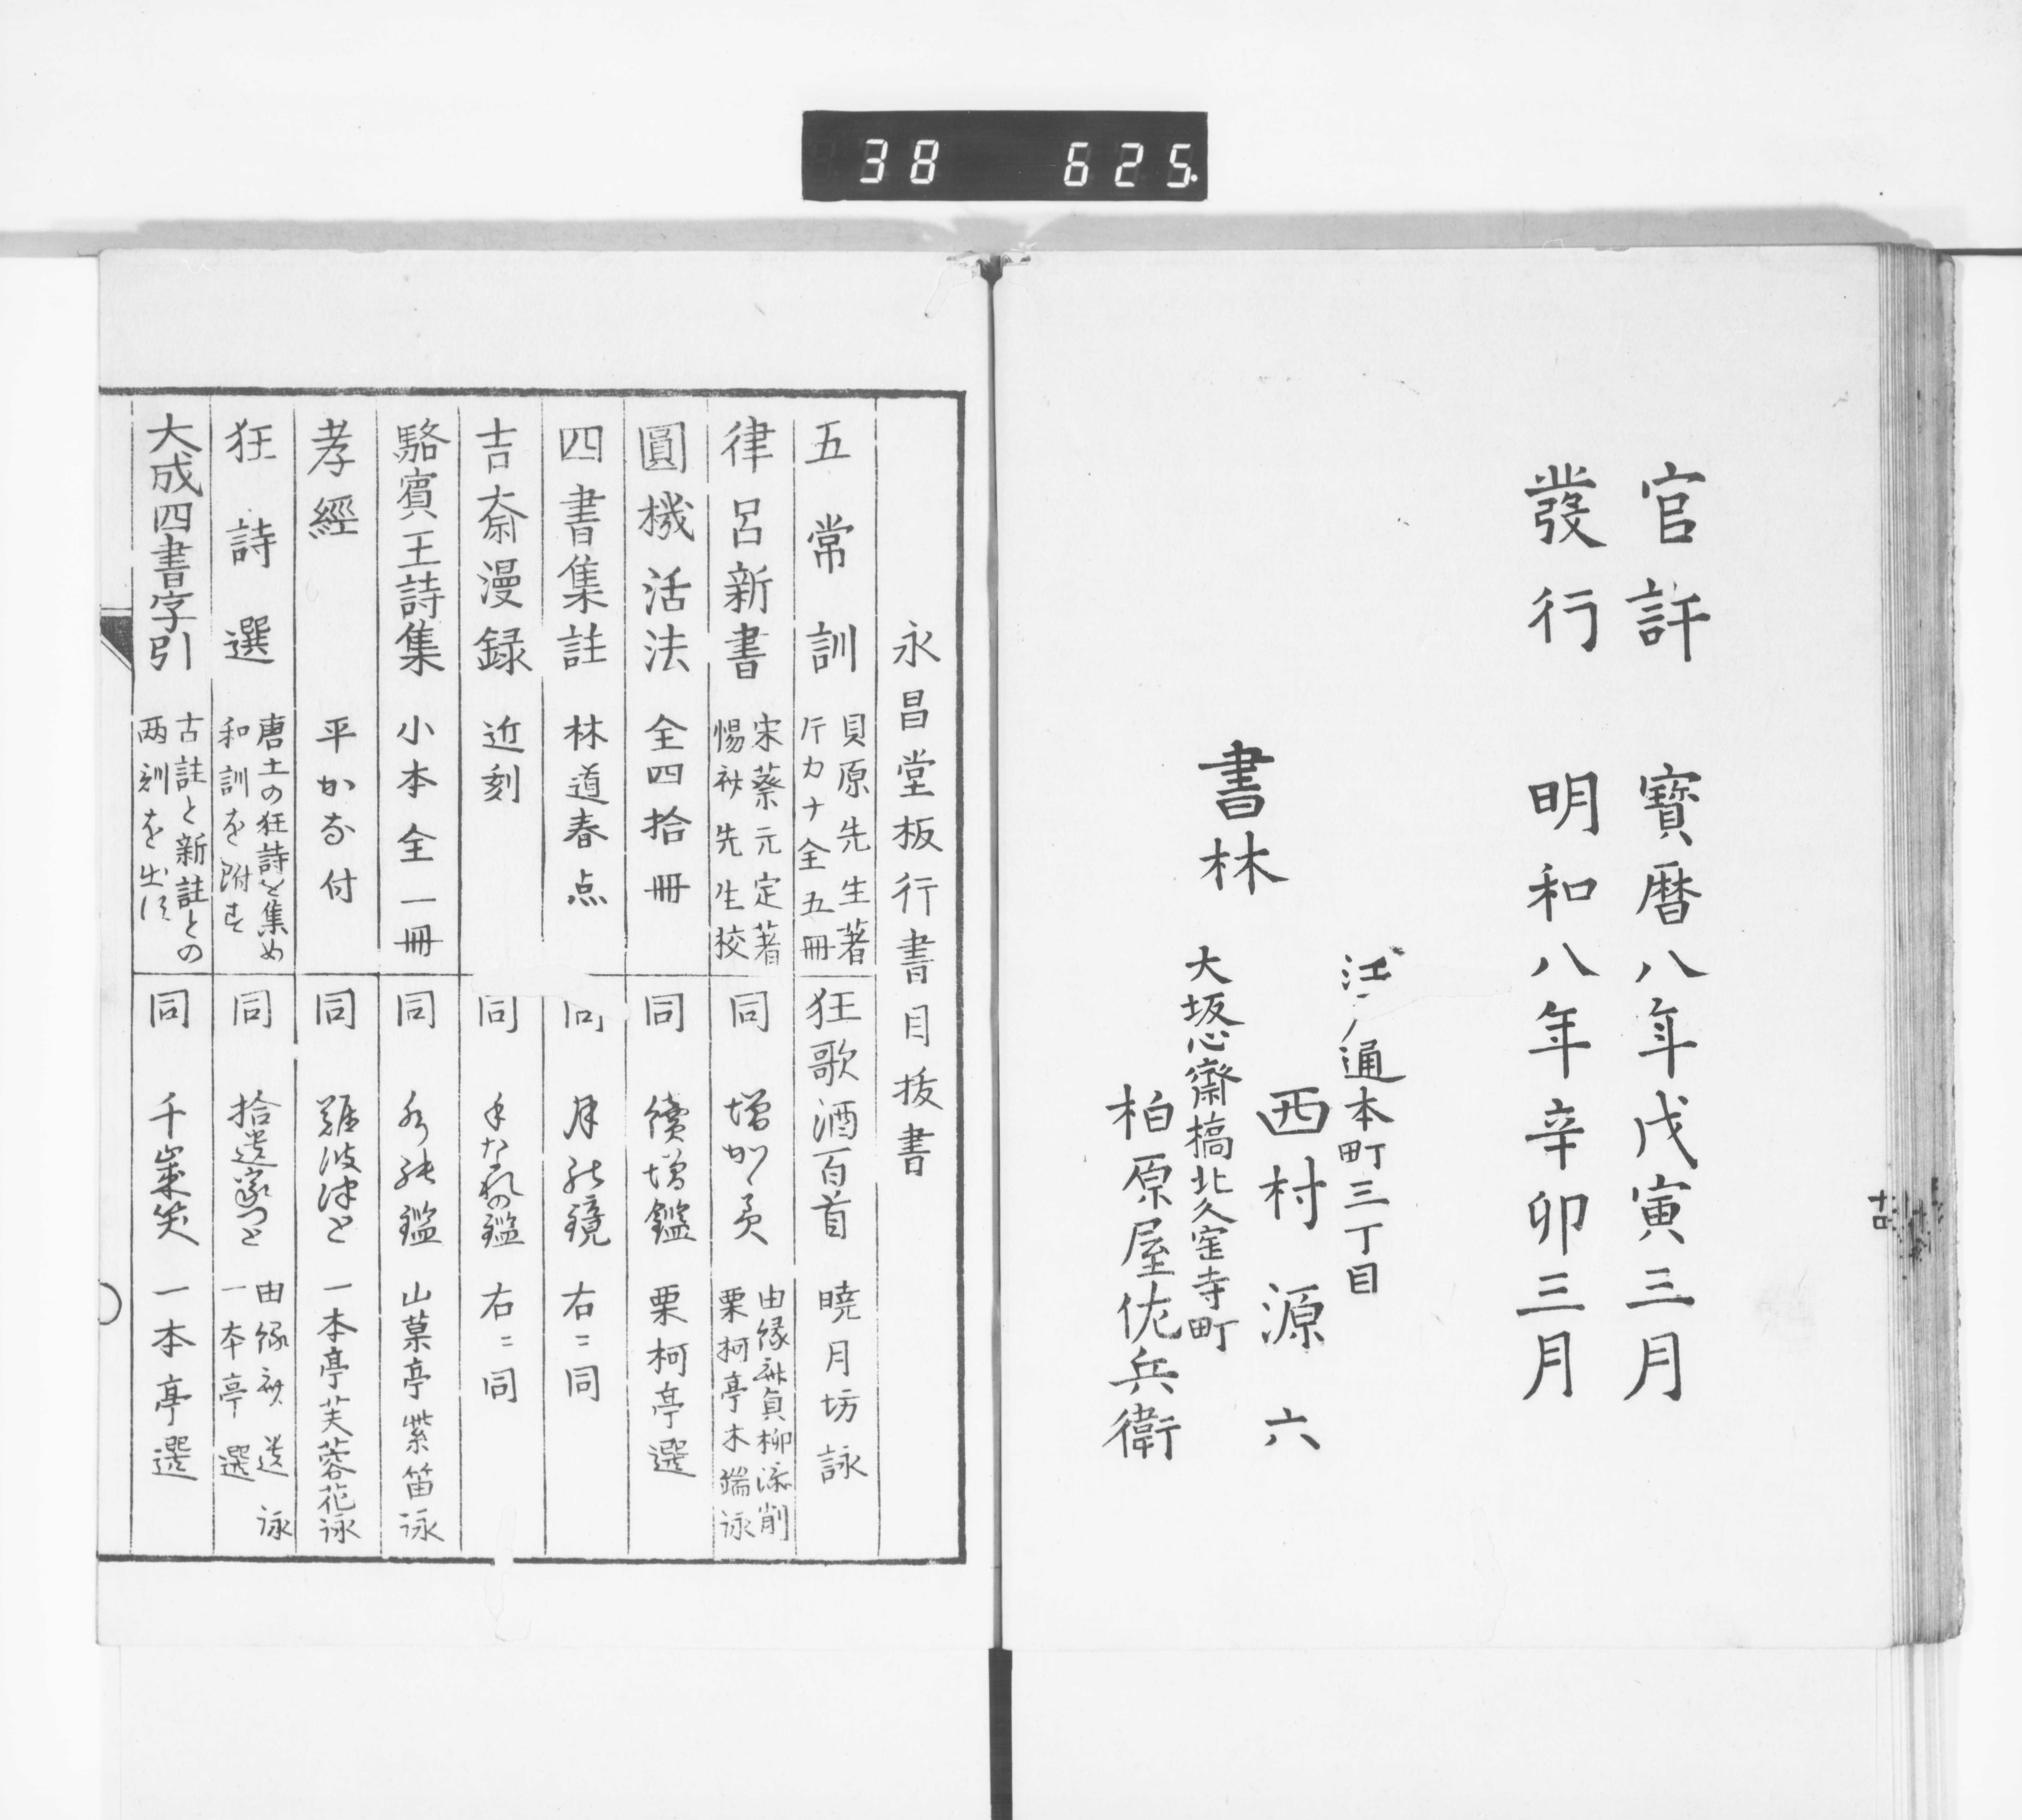 38 625.
官許 寳暦八年戊寅三月
發行 明和八年辛卯三月
書林
江戸通本町三丁目
西村源六
大坂心齋橋北久宝寺町
柏原屋佐兵衛
永昌堂板行書目抜書
五常訓 貝原先生著
片カナ全五冊
律呂新書 宋蔡元定著
惕斎先生校
圓機活法 全四拾冊
四書集註 林道春点
吉斎漫録 近刻
駱賓王詩集 小本全一冊
孝經 平かな付
狂詩選 唐土の狂詩を集め
和訓を附す
大成四書字引 古註と新註との
両刻を出す
狂歌酒百首 暁月坊詠
同 由縁斎貞柳添削
栗柯亭木端詠
同 續増鑑 栗柯亭選
同 月の鏡 右ニ同
同 手なれの鑑 右ニ同
同 山菓亭紫笛詠
同 難波津と 一本亭芙蓉花詠
同 拾遺家つと 由縁斎
一本亭選
同 千嵗笑 一本亭選